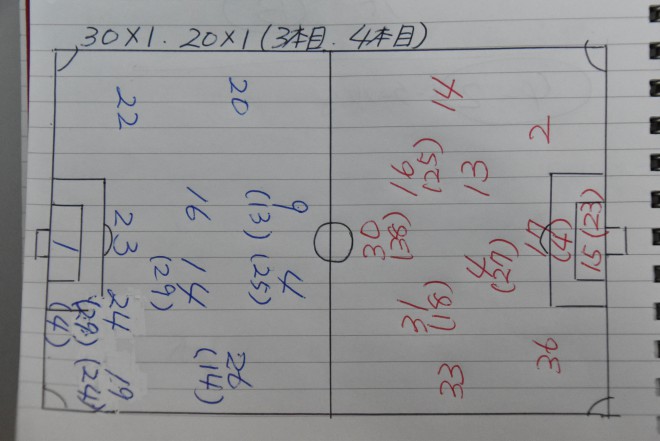 30×1. 20×1 (3本目. 4本目)
22
20
23
16
9
(13)
4
(25)
14
(29)
1
24
(29)
(4)
19
(24)
26
(14)
14
2
16
(25)
13
30
(38)
17
(4)
15 (23)
4
(27)
31
(18)
33
36